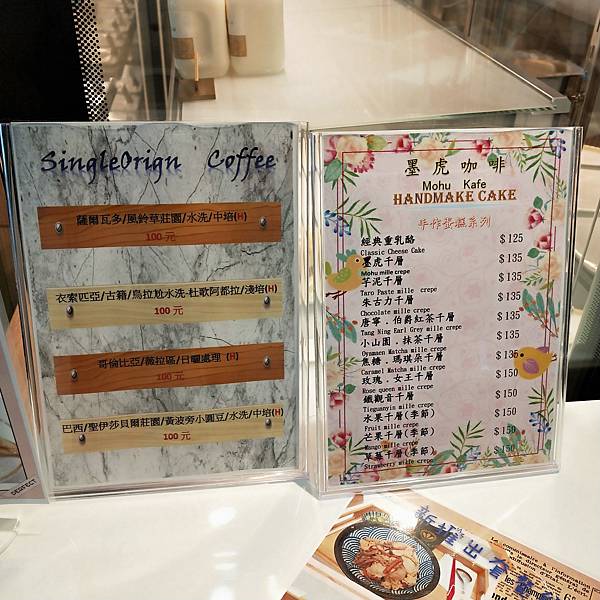 SingleOrign Coffee
薩爾瓦多/風鈴草莊園/水洗/中培(H)
100 元
衣索匹亞/古籍/烏拉尬水洗-杜歌阿都拉/淺培(H)
100 元
哥倫比亞/薇拉區/日曬處理 (H)
100 元
巴西/聖伊莎貝爾莊園/黃波旁小圓豆/水洗/中培(H)
100 元
墨虎咖啡
Mohu Kafe
HANDMAKE CAKE
手作蛋糕系列
經典重乳酪 $125
Classic Cheese Cake
墨虎千層 $135
Mohu mille crepe
芋泥千層 $135
Taro Paste mille crepe
朱古力千層 $135
Chocolate mille crepe
唐寧．伯爵紅茶千層 $135
Tang Ning Earl Grey mille crepe
小山園．抹茶千層 $135
Oyamaen Matcha mille crepe
焦糖．瑪琪朵千層 $135
Caramel Matcha mille crepe
玫瑰．女王千層 $150
Rose queen mille crepe
鐵觀音千層 $150
Tieguanyin mille crepe
水果千層(季節) $150
Fruit mille crepe
芒果千層(季節) $150
Mango mille crepe
草莓千層(季節) $150
Strawberry mille crepe
PERFECT
新推出